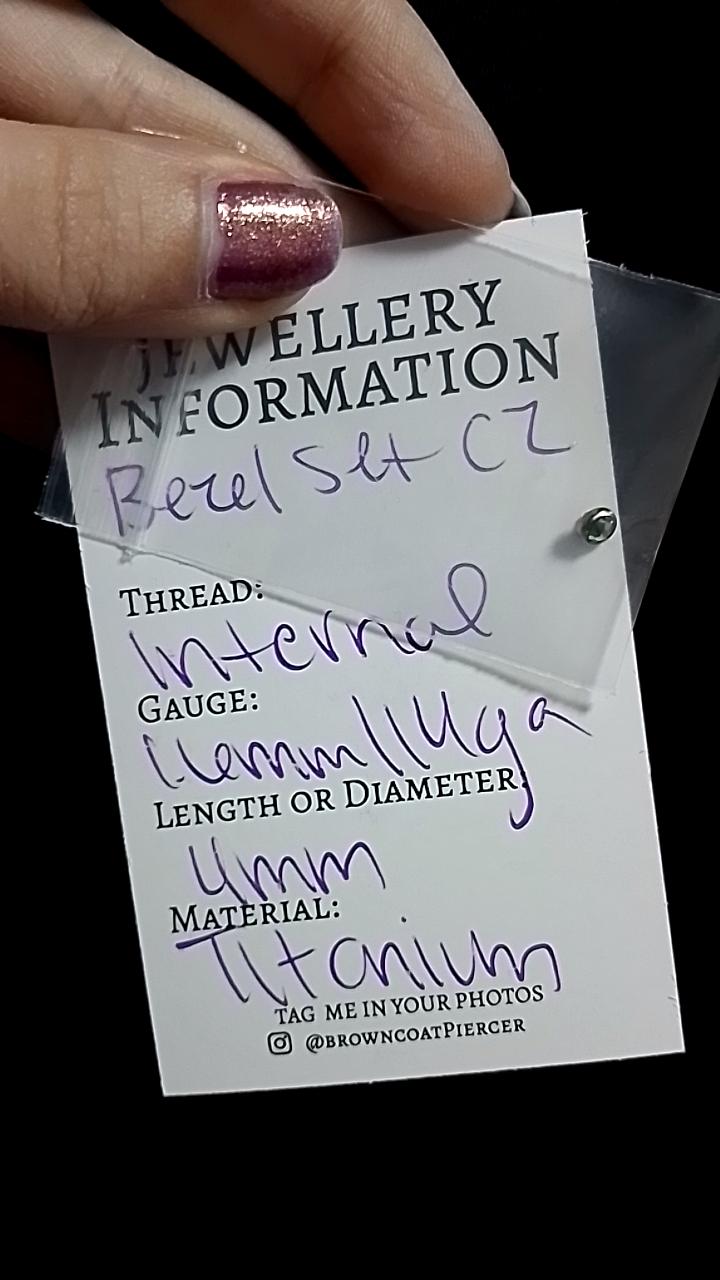 JEWELLERY
INFORMATION
Bezel Set CZ
THREAD:
Internal
GAUGE:
1.6mm/14ga
LENGTH OR DIAMETER:
4mm
MATERIAL:
Titanium
TAG ME IN YOUR PHOTOS
@BROWNCOATPIERCER